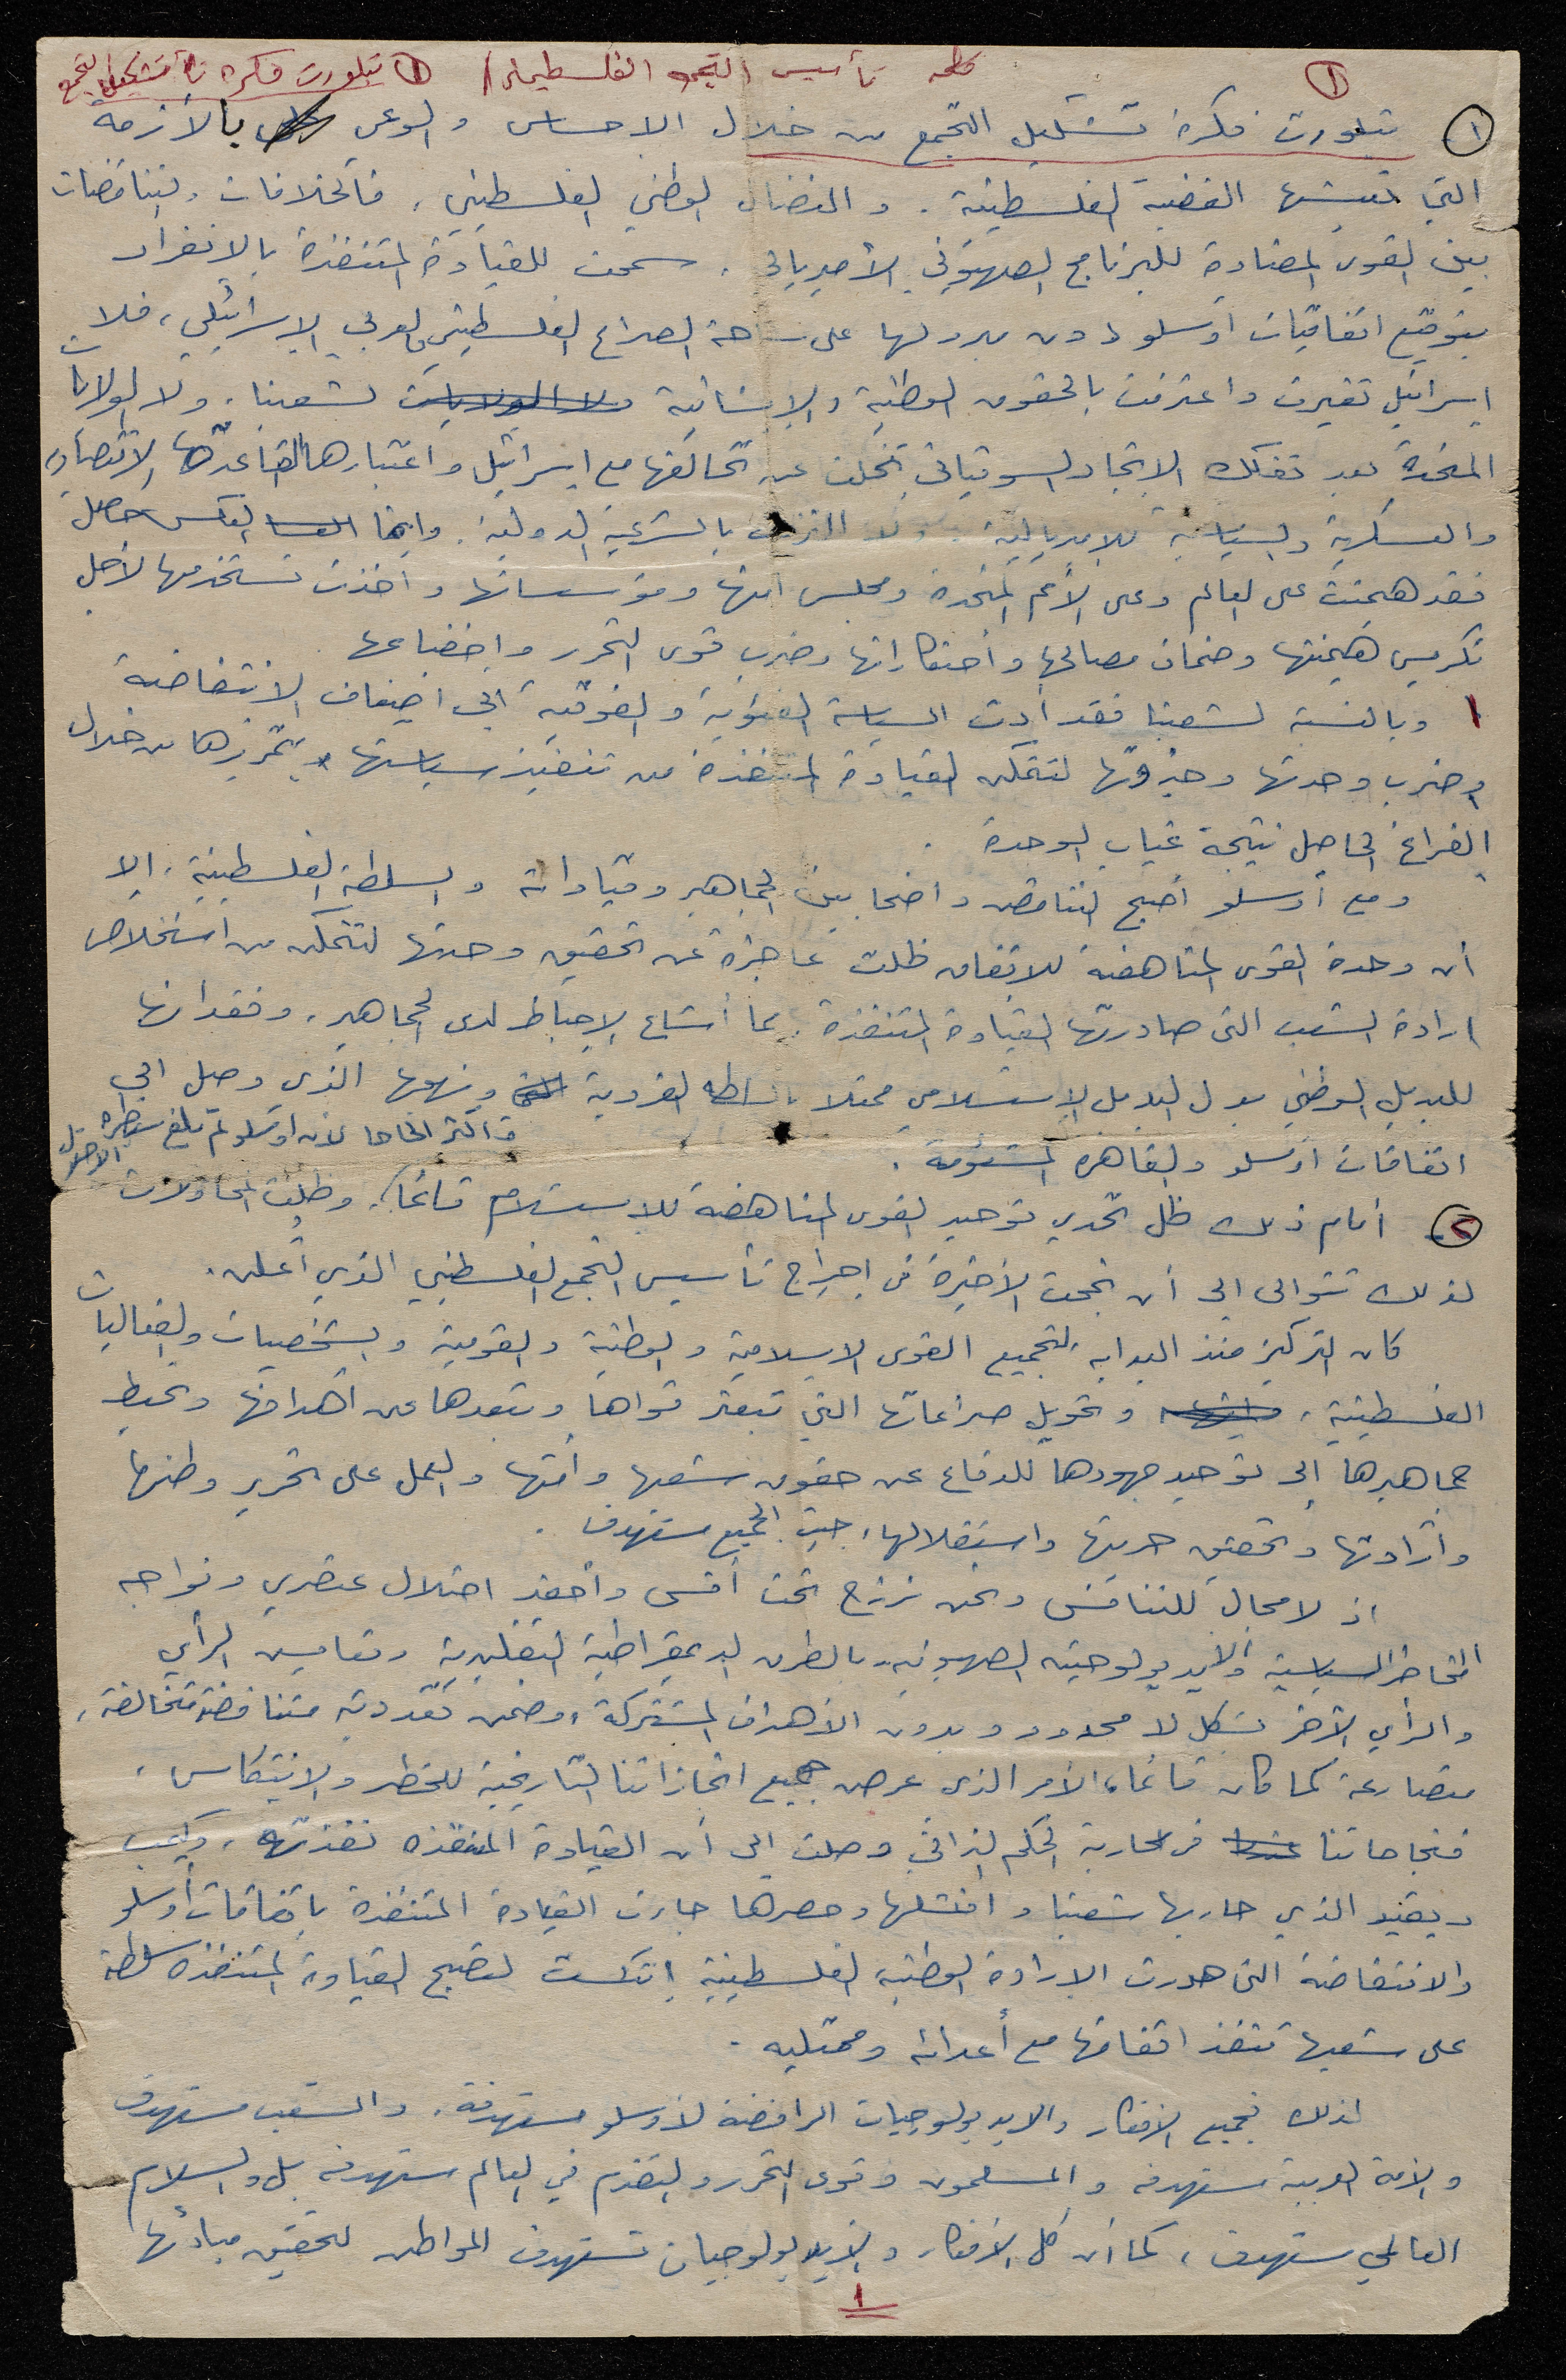 ① كلمة تأسيس التجمع الفلسطيني / ① تبلورت فكرة تشكيل التجمع
① تبلورت فكرة تشكيل التجمع من خلال الاحساس والوعي بالأزمة
التي تعيشها القضية الفلسطينية . والنضال الوطني الفلسطيني ، فالخلافات والتناقضات
بين القوى المضادة للبرنامج الصهيوني الأمبريالي . سمحت للقيادة المتنفذة بالانفراد
بتوقيع اتفاقيات أوسلو دون مبرر لها على ساحة الصراع الفلسطيني والعربي الإسرائيلي ، فلا
إسرائيل تغيرت واعترفت بالحقوق الوطنية والإنسانية لشعبنا . ولا الولايات
المتحدة بعد تفكك الاتحاد السوفياتي تخلت عن تحالفها مع إسرائيل واعتبارها القاعدة الاقتصادية
والعسكرية والسياسية للامبريالية . ولا التزمت بالشرعية الدولية . وإنما العكس حاصل
فقد هيمنت على العالم وعلى الأمم المتحدة ومجلس أمنها ومؤسساتها وأخذت تستخدمها لأجل
تكريس هيمنتها وضمان مصالحها وأحتكاراتها وضرب قوى التحرر وإخضاعها
وبالنسبة لشعبنا فقد أدت السياسة الفئوية والفوقية الى اضعاف الانتفاضة
وضرب وحدتها لتتمكن القيادة المتنفذة من تنفيذ سياستها وتمريرها من خلال
الفراغ الحاصل نتيجة غياب الوحدة .
ومع أوسلو أصبح التناقض واضحا بين الجماهير وقياداته والسلطة الفلسطينية . إلا
أن وحدة القوى المناهضة للاتفاق ظلت عاجزة عن تحقيق وحدتها لتتمكن من استخلاص
إرادة الشعب التي صادرتها القيادة المتنفذة . مما أشاع الإحباط لدى الجماهير ، وفقدانها
للبديل الوطني بدل البديل الإستسلامي ممثلا بالسلطة الفردية ونهجها الذي وصل الى
اتفاقات أوسلو والقاهرة المشؤومة . وأكثر الحاحا لأن أوسلو لم تلغ سيطرة الاحتلال
② أمام ذلك ظل تحدي توحيد القوى المناهضة للاستسلام قائماً . وظلت المحاولات
لذلك تتوالى الى أن نجحت الأخيرة في إخراج تأسيس التجمع الفلسطيني الذي أعلن .
كان التركيز منذ البداية لتجميع القوى الإسلامية والوطنية والقومية والشخصيات والفعاليات
الفلسطينية ، وتحويل صراعاتها التي تبعثر قواها وتبعدها عن أهدافها وتحبط
جماهيرها إلى توحيد جهودها للدفاع عن حقوق شعبها وأمتها والعمل على تحرير وطنها
وارادتها وتحقيق حريتها واستقلالها ، حيث الجميع مستهدف .
اذ لا مجال للتنافس ونحن نرزح تحت أقسى وأحقد احتلال عنصري ونواجه
المخاطر السياسية والأيديولوجية الصهيونية ، بالطرق الديمقراطية التقليدية وتعايش الرأي
والرأي الآخر بشكل لا محدود وبدون الأهداف المشتركة ، وضمن تعددية متناقضة متخالفة ،
متصارعة كما كان قائماً ، الأمر الذي عرض جميع انجازاتنا التاريخية للخطر والانتكاس ،
فنجاحاتنا في محاربة الحكم الذاتي وصلت الى أن القيادة المتنفذة نفذته ، وكامب
ديفيد الذي حاربها شعبنا وأفشلها وحصرها جاءت القيادة المتنفذة باتفاقات أوسلو
والانتفاضة التي هدرت الإرادة الوطنية الفلسطينية إنتكست لتصبح القيادة المتنفذة سلطة
على شعبها تنفذ اتفاقها مع أعدائه ومحتليه .
لذلك فجميع الأفكار والايديولوجيات الرافضة لأوسلو مستهدفة . والشعب مستهدف
والأمة العربية مستهدفة والمسلمون وقوى التحرر والتقدم في العالم مستهدفة بل والسلام
العالمي مستهدف ، كما أن كل الأفكار والأيديولوجيات تستهدف المواطن لتحقيق مبادئها
١